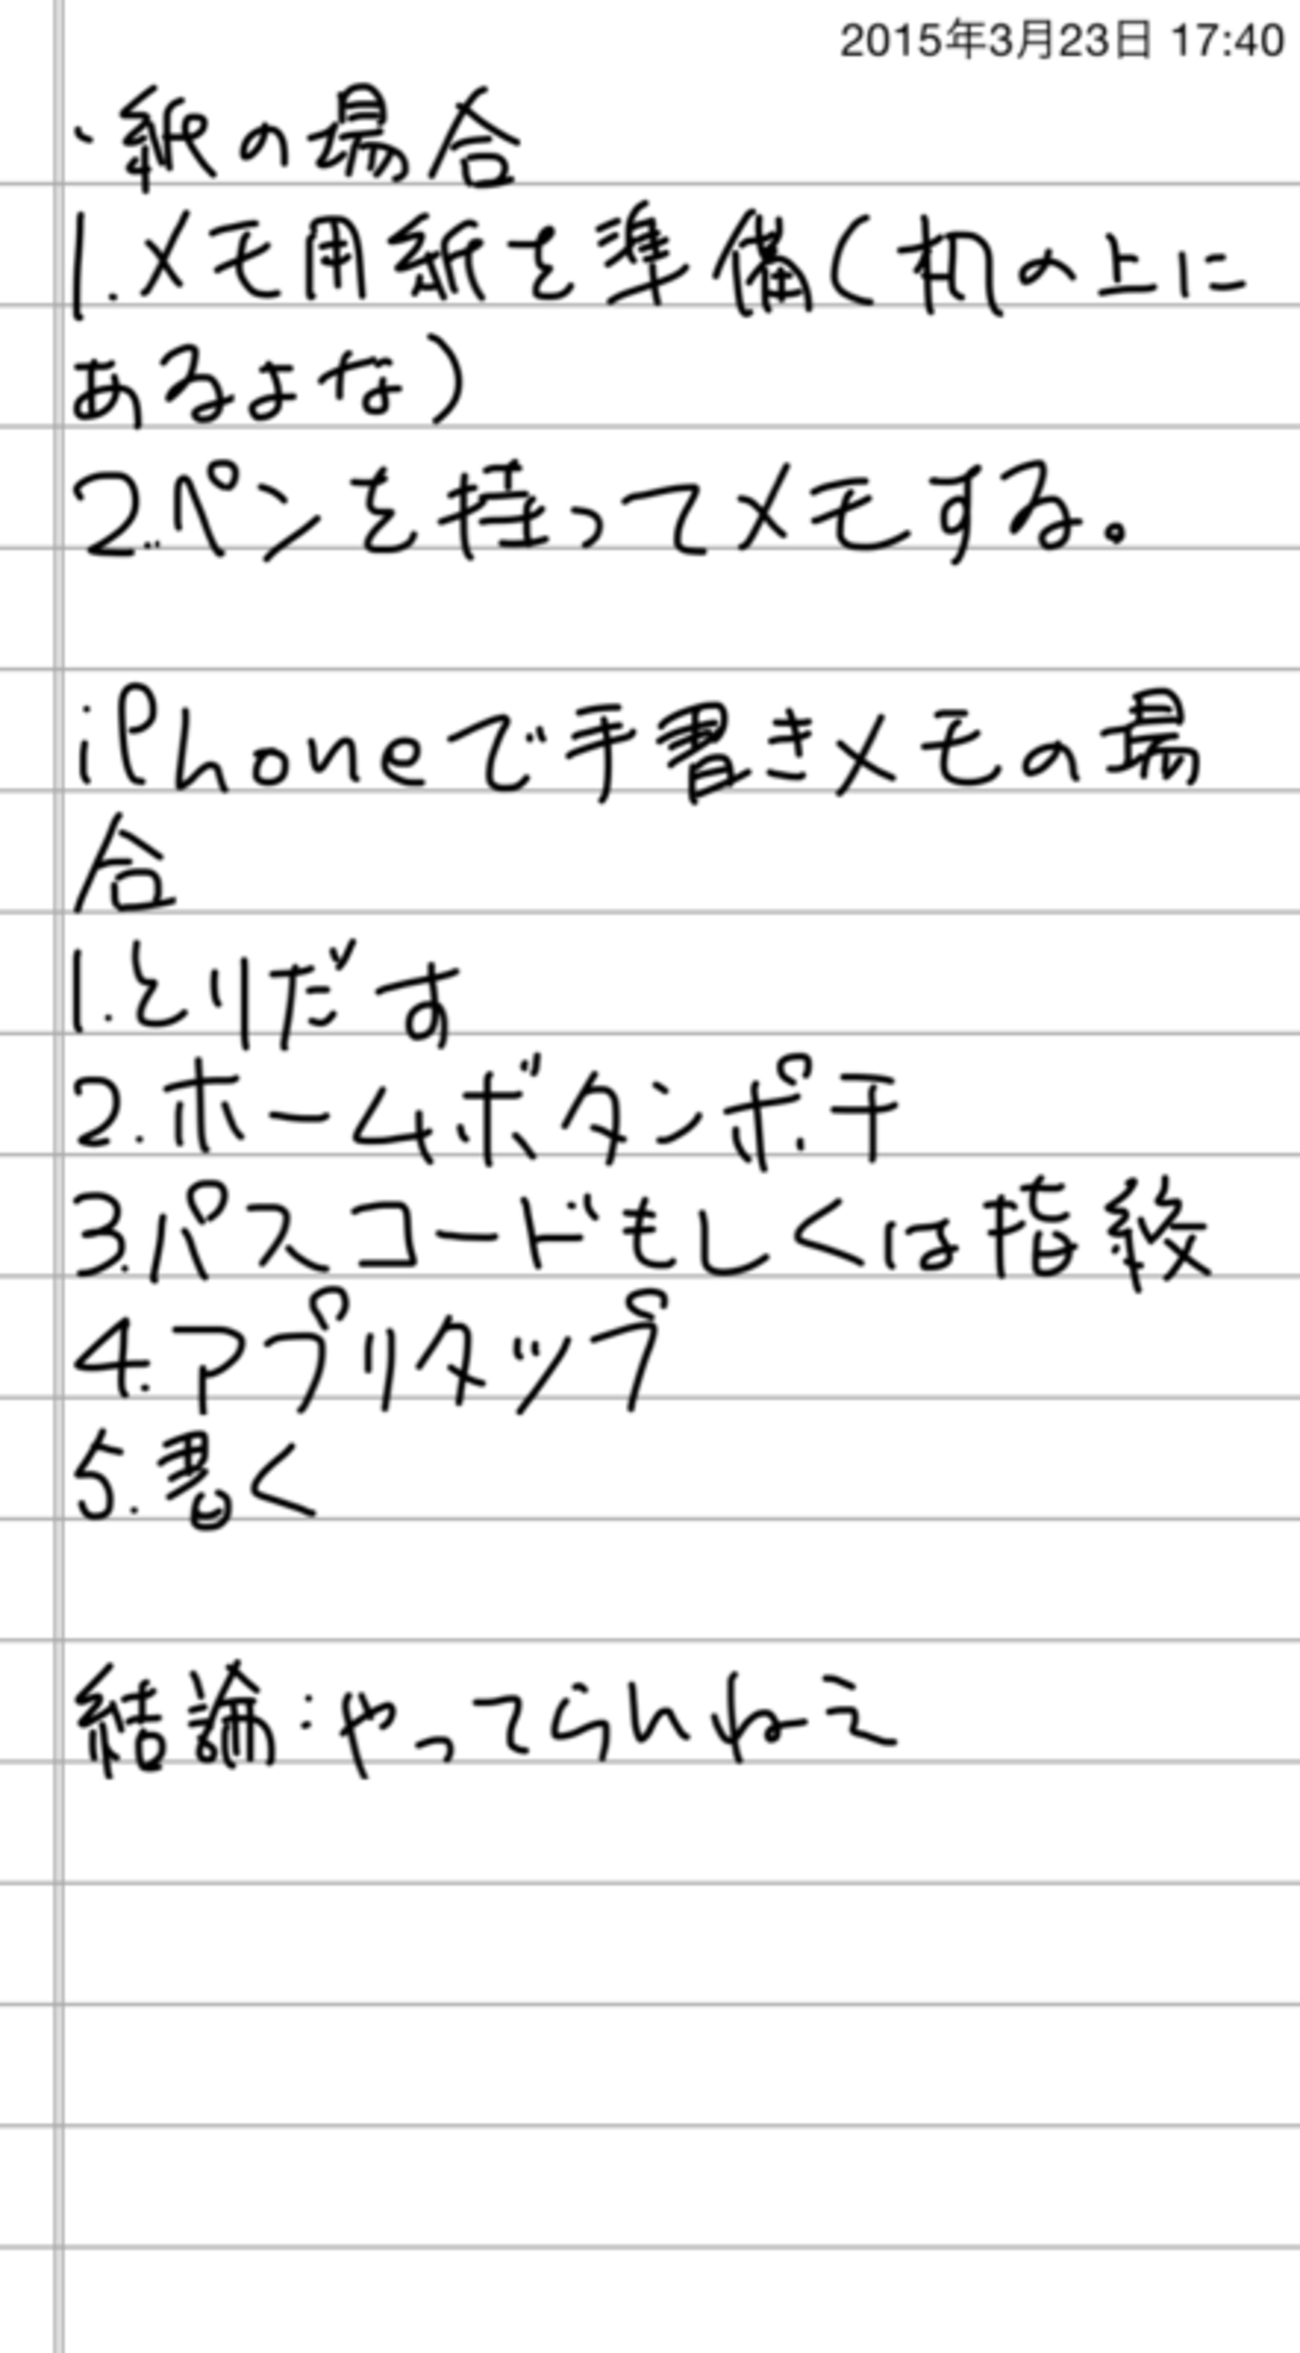 2015年3月23日 17:40
・紙の場合
1.メモ用紙を準備(机の上に
あるよな)
2.ペンを持ってメモする。
iPhoneで手書きメモの場
合
1.とりだす
2.ホームボタンポチ
3.パスコードもしくは指紋
4.アプリタップ
5.書く
結論:やってらんねえ